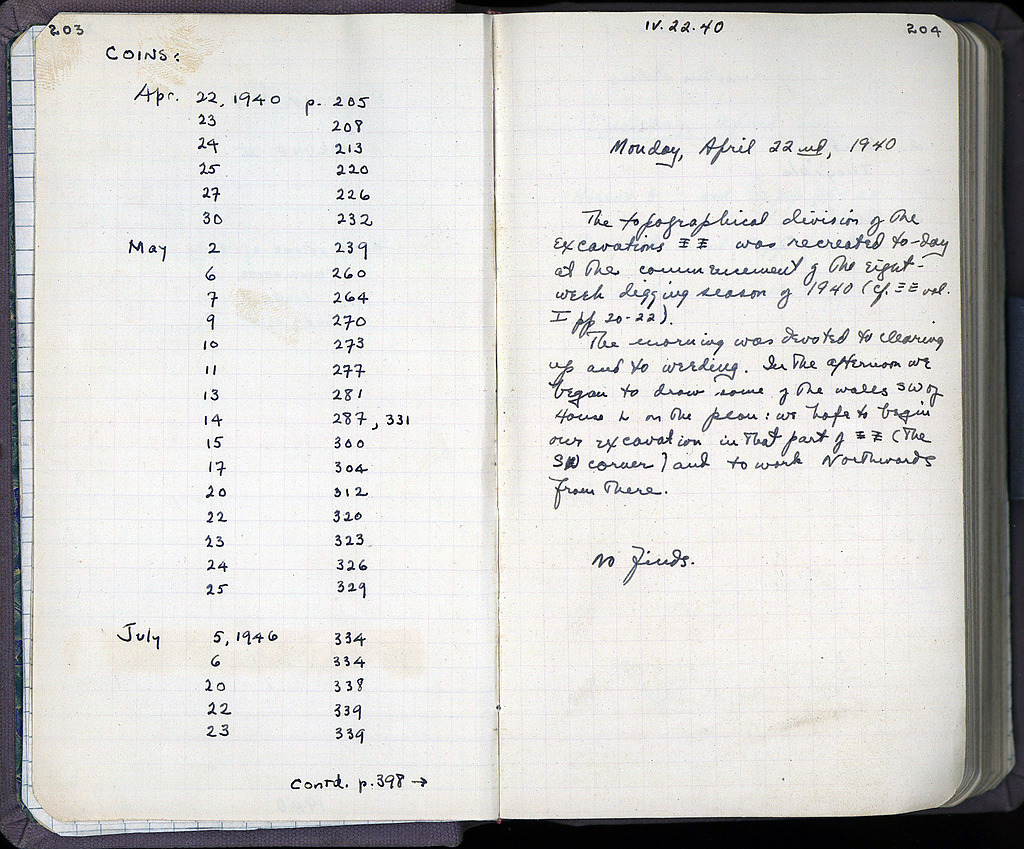 203
COINS:
Apr. 22, 1940 p. 205
23 208
24 213
25 220
27 226
30 232
May 2 239
6 260
7 264
9 270
10 273
11 277
13 281
14 287, 331
15 300
17 304
20 312
22 320
23 323
24 326
25 329
July 5, 1946 334
6 334
20 338
22 339
23 339
Contd. p. 398 →
IV. 22. 40 204
Monday, April 22nd, 1940
The topographical division of the
Excavations ΞΞ was recreated to-day
at the commencement of the eight-
week digging season of 1940 (cf. ΞΞ vol.
I pp 20-22).
The morning was devoted to clearing
up and to weeding. In the afternoon we
began to draw some of the walls SW of
House L on the plan: we hope to begin
our excavation in that part of ΞΞ (the
SW corner) and to work Northwards
from there.
No Finds.